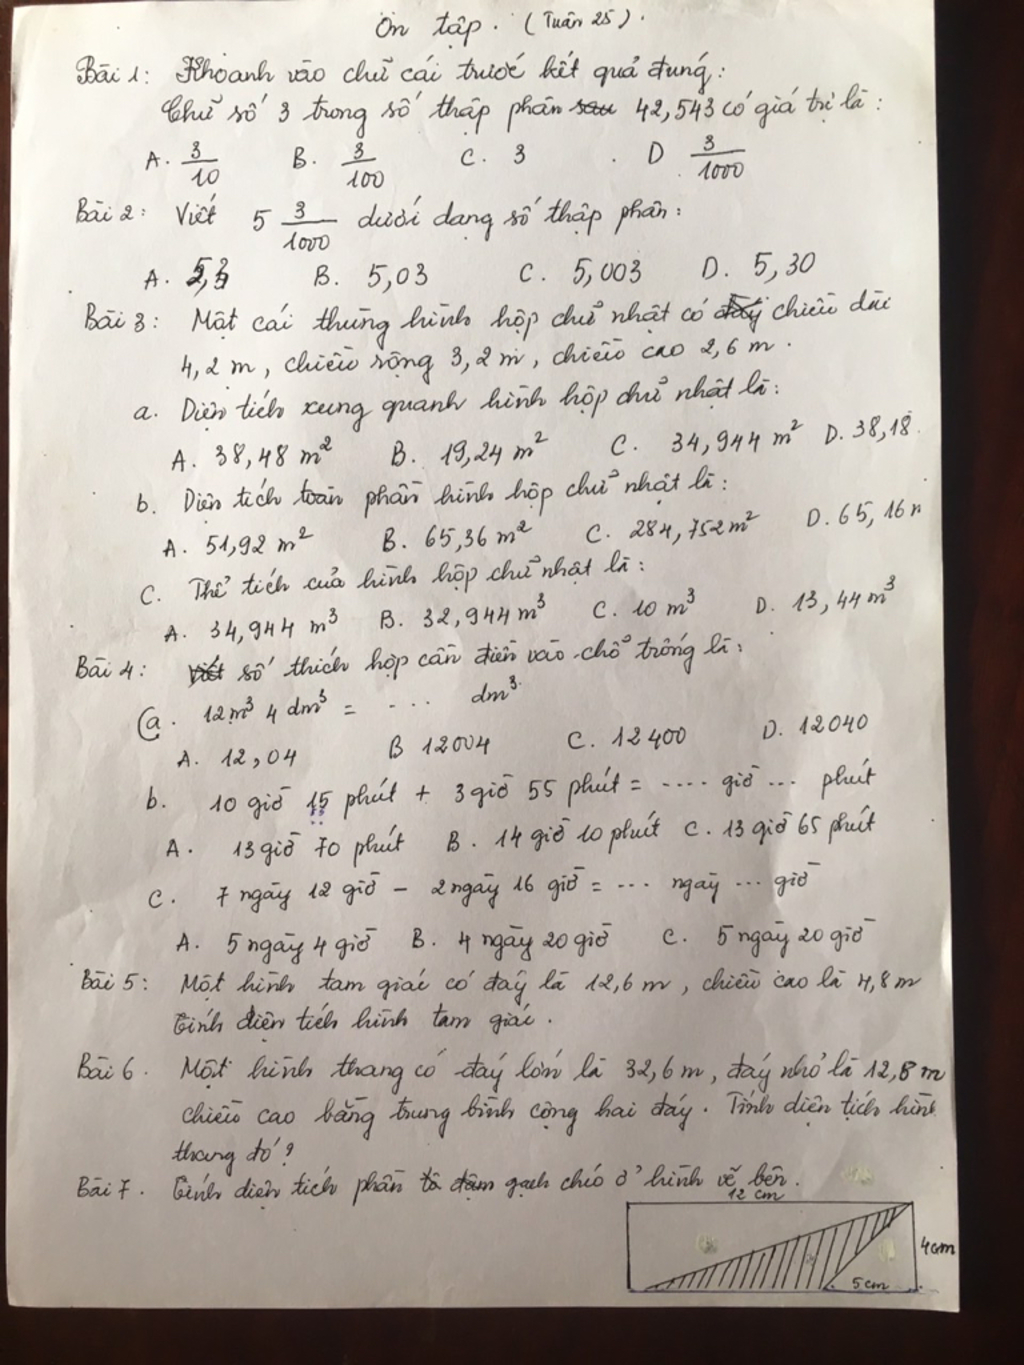 Ôn tập. (Tuần 25).
Bài 1: Khoanh vào chữ cái trước kết quả đúng:
Chữ số 3 trong số thập phân sau 42,543 có giá trị là:
A. 3/10 B. 3/100 C. 3 D 3/1000
Bài 2: Viết 5 3/1000 dưới dạng số thập phân:
A. 5,3 B. 5,03 C. 5,003 D. 5,30
Bài 3: Một cái thùng hình hộp chữ nhật có đáy chiều dài
4,2 m, chiều rộng 3,2 m, chiều cao 2,6 m.
a. Diện tích xung quanh hình hộp chữ nhật là:
A. 38,48 m² B. 19,24 m² C. 34,944 m² D. 38,18
b. Diện tích toàn phần hình hộp chữ nhật là:
A. 51,92 m² B. 65,36 m² C. 284,752 m² D. 65,16 m
C. Thể tích của hình hộp chữ nhật là:
A. 34,944 m³ B. 32,944 m³ C. 10 m³ D. 13,44 m³
Bài 4: Viết số thích hợp cần điền vào chỗ trống là:
a. 12m³ 4 dm³ = ... dm³
A. 12,04 B 12004 C. 12400 D. 12040
b. 10 giờ 15 phút + 3 giờ 55 phút = .... giờ ... phút
A. 13 giờ 70 phút B. 14 giờ 10 phút C. 13 giờ 65 phút
C. 7 ngày 12 giờ - 2 ngày 16 giờ = ... ngày ... giờ
A. 5 ngày 4 giờ B. 4 ngày 20 giờ C. 5 ngày 20 giờ
Bài 5: Một hình tam giác có đáy là 12,6 m, chiều cao là 4,8 m
Tính diện tích hình tam giác.
Bài 6. Một hình thang có đáy lớn là 32,6 m, đáy nhỏ là 12,8 m
chiều cao bằng trung bình cộng hai đáy. Tính diện tích hình
thang đó?
Bài 7. Tính diện tích phần tô đậm gạch chéo ở hình vẽ bên.
12 cm
4cm
5cm